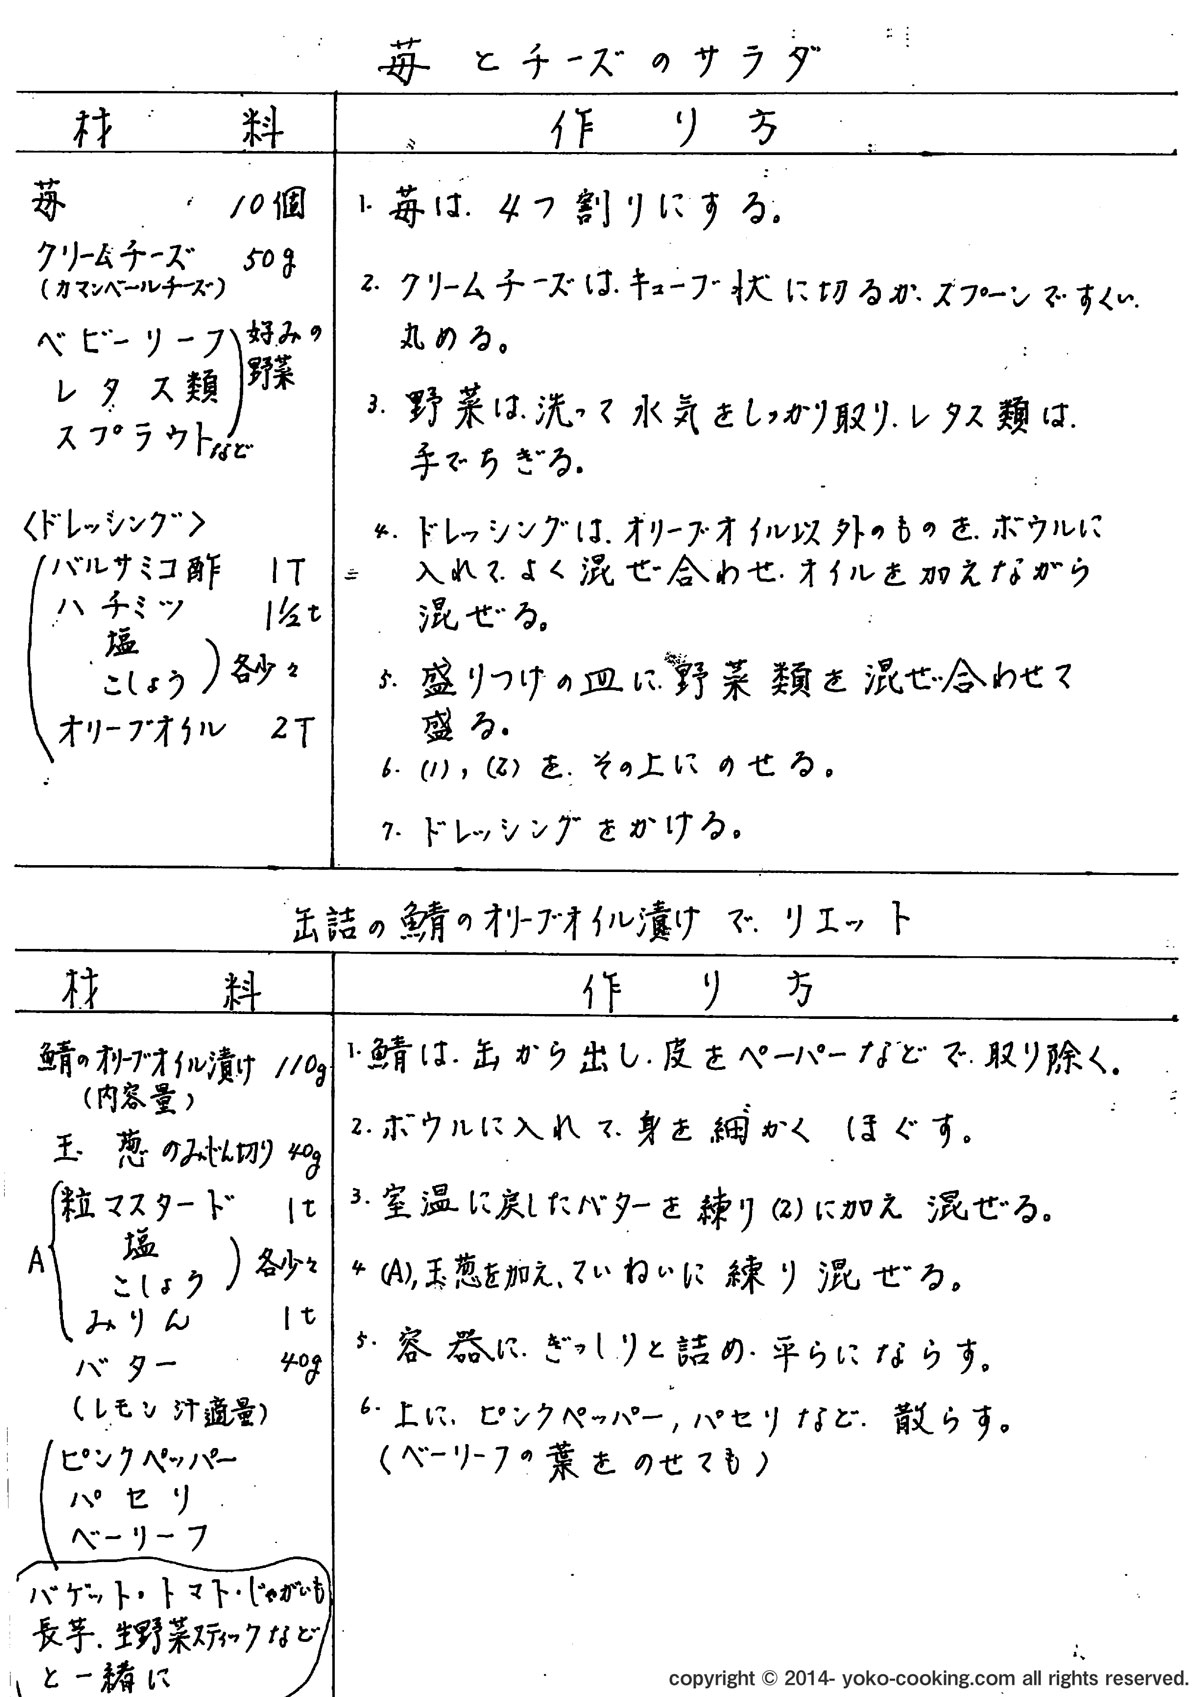 苺とチーズのサラダ
材 料
作 り 方
苺 10個
クリームチーズ 50g
(カマンベールチーズ)
ベビーリーフ
レタス類
スプラウトなど
好みの
野菜
〈ドレッシング〉
バルサミコ酢 1T
ハチミツ 1½t
塩
こしょう
各少々
オリーブオイル 2T
1. 苺は、4つ割りにする。
2. クリームチーズは、キューブ状に切るか、スプーンですくい、
丸める。
3. 野菜は、洗って水気をしっかり取り、レタス類は、
手でちぎる。
4. ドレッシングは、オリーブオイル以外のものを、ボウルに
入れて、よく混ぜ合わせ、オイルを加えながら
混ぜる。
5. 盛りつけの皿に、野菜類を混ぜ合わせて
盛る。
6. (1), (2)を、その上にのせる。
7. ドレッシングをかける。
缶詰の鯖のオリーブオイル漬けで、リエット
材 料
作 り 方
鯖のオリーブオイル漬け 110g
(内容量)
玉葱のみじん切り 40g
A
粒マスタード 1t
塩
こしょう
各少々
みりん 1t
バター 40g
(レモン汁適量)
ピンクペッパー
パセリ
ベーリーフ
バゲット・トマト・じゃがいも
長芋、生野菜スティックなど
と一緒に
1. 鯖は、缶から出し、皮をペーパーなどで、取り除く。
2. ボウルに入れて、身を細かくほぐす。
3. 室温に戻したバターを練り(2)に加え混ぜる。
4 (A),玉葱を加え、ていねいに練り混ぜる。
5. 容器に、ぎっしりと詰め、平らにならす。
6. 上に、ピンクペッパー,パセリなど、散らす。
(ベーリーフの葉をのせても)
copyright © 2014- yoko-cooking.com all rights reserved.